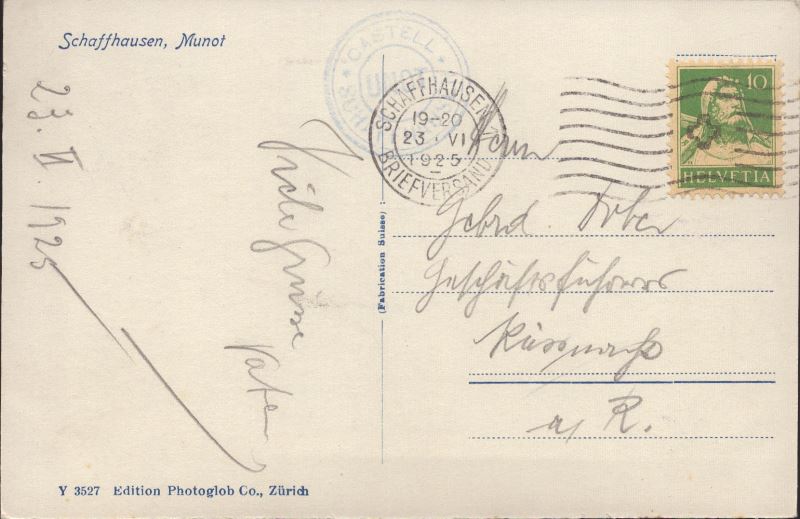 Schaffhausen, Munot
23. VI. 1925
Viele Grüsse
Vater
Y 3527 Edition Photoglob Co., Zürich
(Fabrication Suisse)
CASTELL
SCHAFFHAUSEN 1
19-20
23. VI
1925
BRIEFVERSAND
10
HELVETIA
Herrn
Gebrd.
Geschäftsführer
Küssnacht
a/ R.